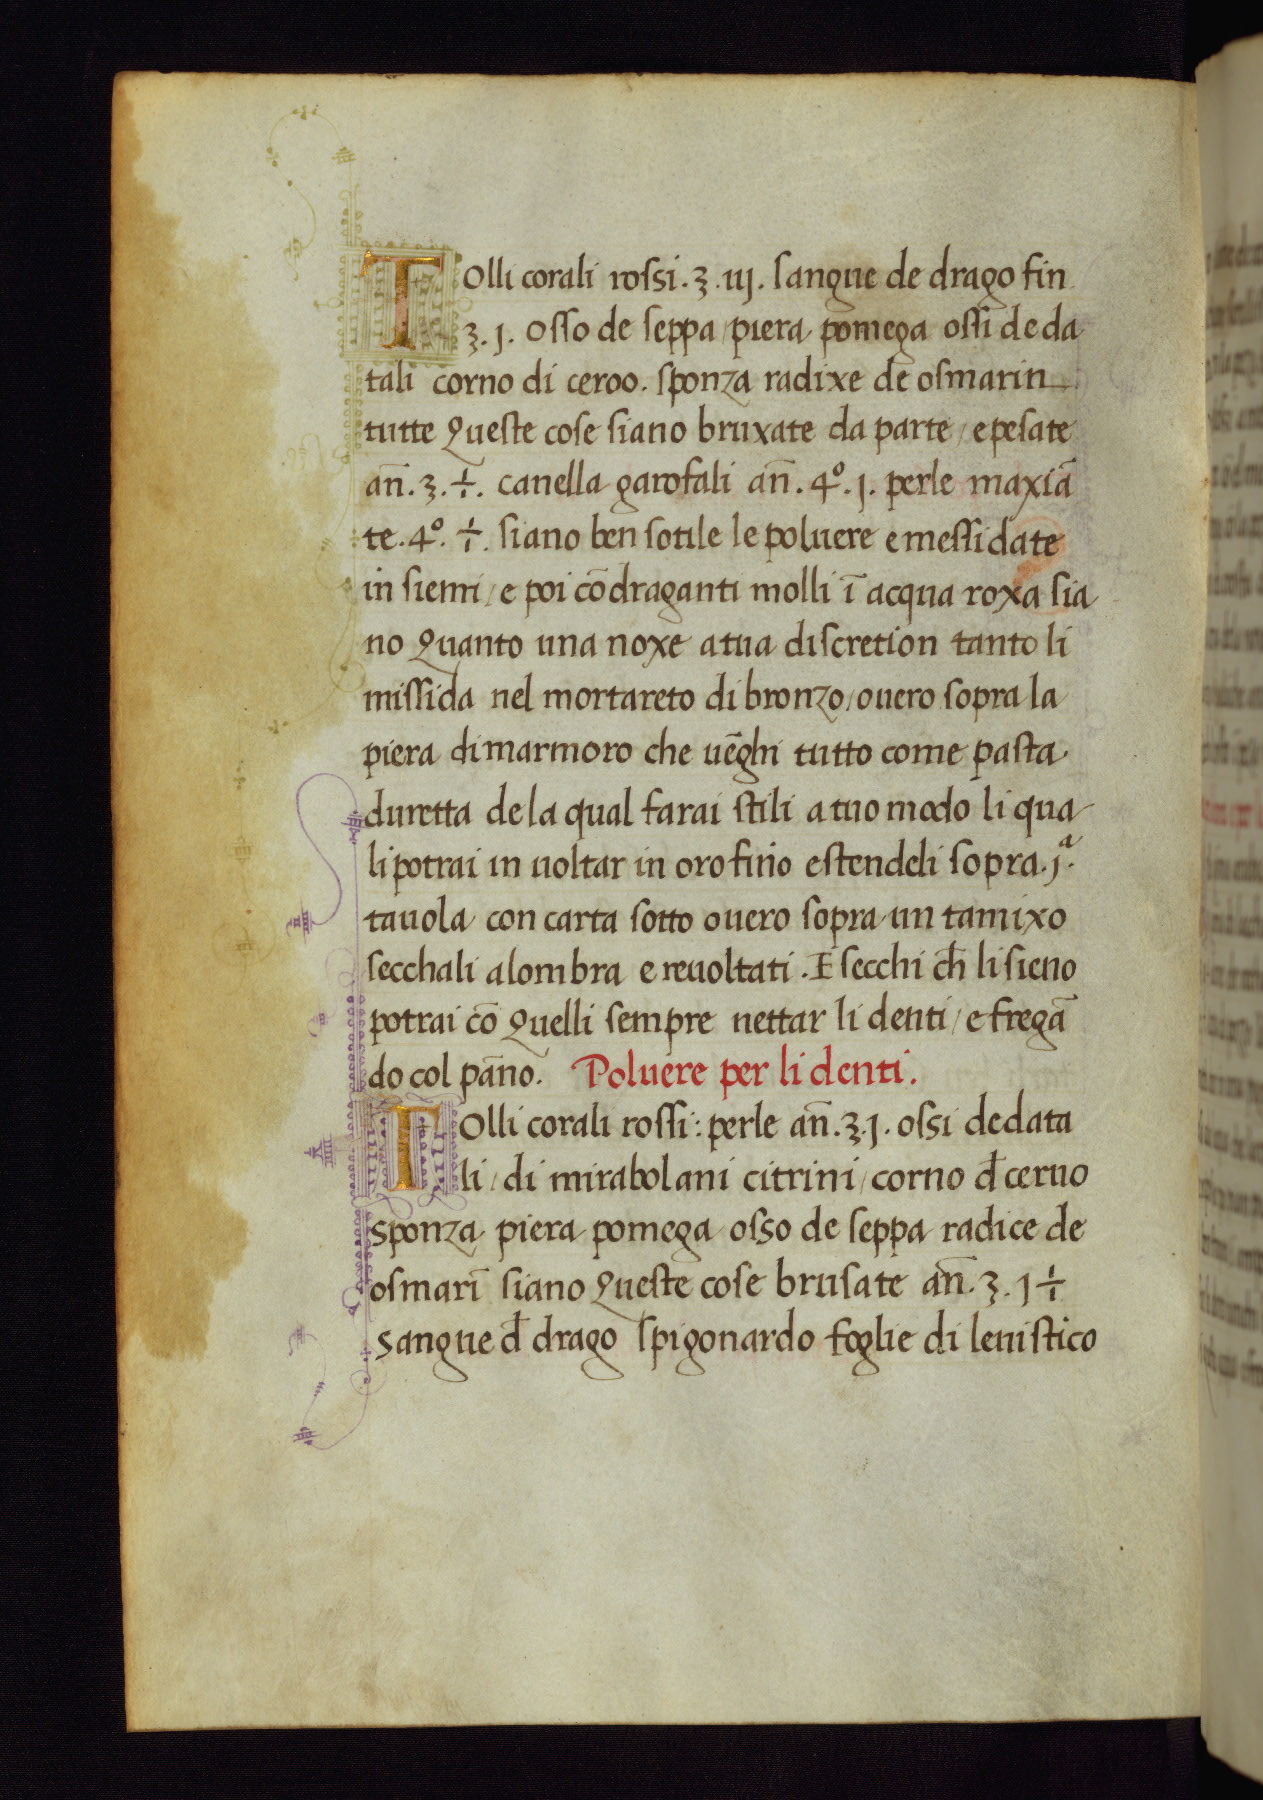 Tolli corali rossi. ʒ. iij. sangue de drago fin
ʒ. j. osso de seppa / piera pomega ossi de da
tali corno di ceroo. sponza radixe de osmarin
tutte queste cose siano bruxate da parte / e pesate
an̄. ʒ. ÷. canella garofali an̄. 4º. j. perle maxīa
te. 4º. ÷. siano ben sotile le poluere e messidate
in siemi / e poi cō draganti molli ī acqua roxa sia
no quanto una noxe a tua discretion tanto li
missida nel mortareto di bronzo / ouero sopra la
piera di marmoro che uēghi tutto come pasta
duretta de la qual farai stili a tuo modo li qua
li potrai in uoltar in oro fino estendeli sopra .jª.
tauola con carta sotto ouero sopra un tamixo
secchali a lombra e reuoltati. E secchi ch̄ li sieno
potrai cō quelli sempre nettar li denti / e fregā
do col pāno. Poluere per li denti.
Tolli corali rossi: perle an̄. ʒ. j. ossi de data
li / di mirabolani citrini / corno đ ceruo
sponza piera pomega osso de seppa radice de
osmarī siano queste cose brusate an̄. ʒ. j ÷
sangue đ drago spigonardo foglie di leuistico